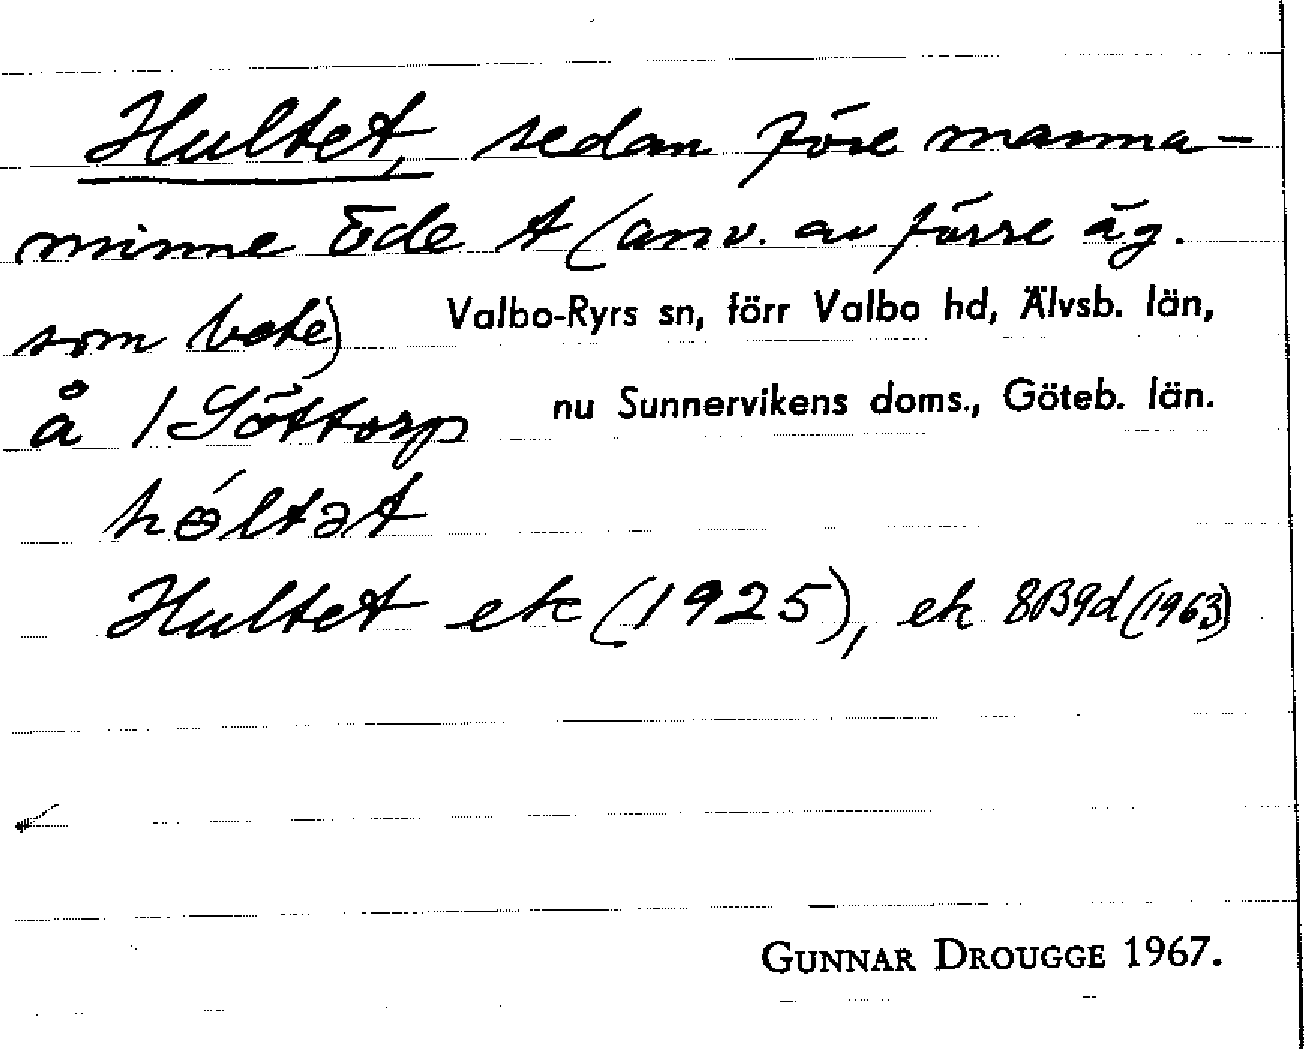 Hultet, sedan före manna-
minne öde t (anv. av förre äg.
som bete) Valbo-Ryrs sn, förr Valbo hd, Älvsb. län,
å 1 Göttorp nu Sunnervikens doms., Göteb. län.
hɵ́ltət
Hultet ek (1925), ek 8B9d (1963)
GUNNAR DROUGGE 1967.